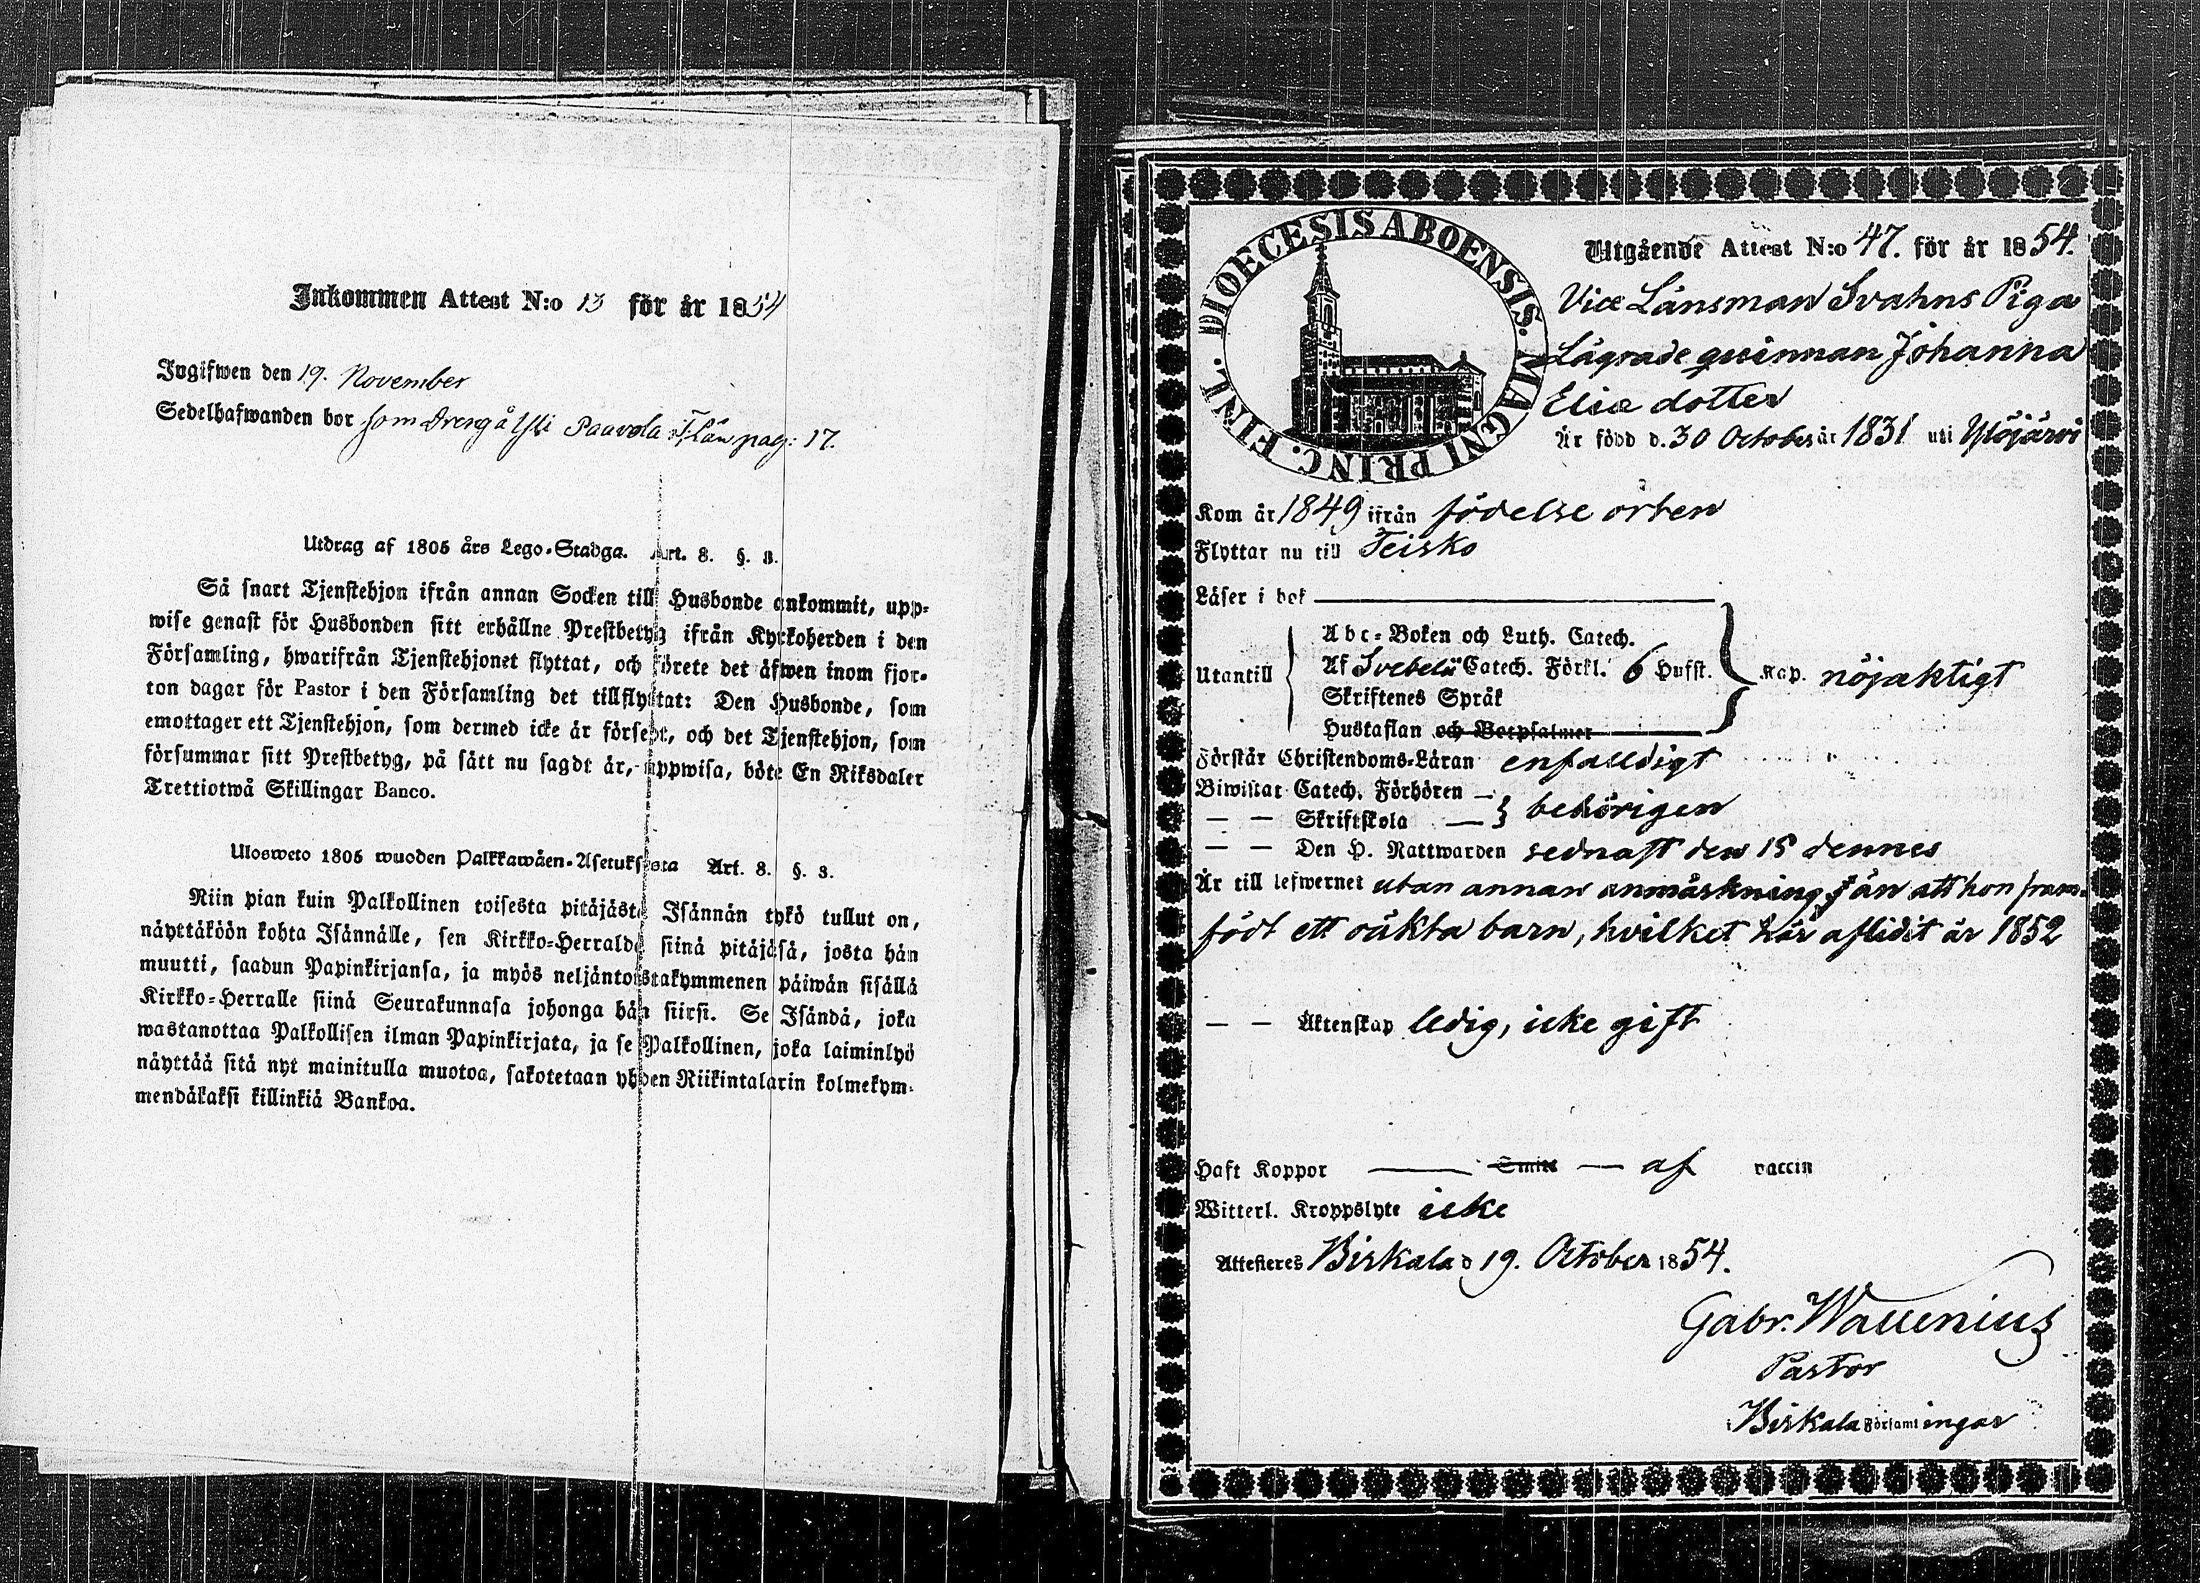 Inkommen Attest N:o 13 för år 1854
Ingifwen den 19. November
Sedelhafwanden bor som Dreng å Yli Paavola pag: 17.
Utdrag af 1805 års Lego-Stadga. Art. 8. §. 3.
Så snart Tjenstehjon ifrån annan Socken till Husbonde ankommit, upp-
wise genast för Husbonden sitt erhållne Prestbetyg ifrån Kyrkoherden i den
Församling, hwarifrån Tjenstehjonet flyttat, och förete det äfwen inom fjor-
ton dagar för Pastor i den Församling det tillflyttat: Den Husbonde, som
emottager ett Tjenstehjon, som dermed icke är försedt, och det Tjenstehjon, som
försummar sitt Prestbetyg, på sätt nu sagdt är, uppwisa, böte En Riksdaler
Trettiotwå Skillingar Banco.
Ulosweto 1805 wuoden Palkkawäen-Asetuksesta Art. 8. §. 3.
Niin pian kuin Palkollinen toisesta pitäjästä Isännän tykö tullut on,
näyttäköön kohta Isännälle, sen Kirkko-Herralda siinä pitäjäsä, josta hän
muutti, saadun Papinkirjansa, ja myös neljäntoistakymmenen päiwän sisällä
Kirkko-Herralle siinä Seurakunnasa johonga hän siirsi. Se Isändä, joka
wastanottaa Palkollisen ilman Papinkirjata, ja se Palkollinen, joka laiminlyö
näyttää sitä nyt mainitulla muotoa, sakotetaan yhden Riikintalarin kolmekym-
mendäkaksi killinkiä Bankoa.
DIOECESIS ABOENSIS. MAGNI PRINC. FINL.
Utgående Attest N:o 47. för år 1854.
Vice Länsman Svahns Piga
Lägrade qvinnan Johanna
Elisæ dotter
Är född d. 30 October år 1831 uti Ylöjärvi
Kom år 1849 ifrån födelse orten
Flyttar nu till Teisko
Läser i bok
Utantill
Abc-Boken och Luth. Catech.
Af Svebelii Catech. Förkl. 6 Hufst. Kap. nöjaktigt
Skriftenes Språk
Hustaflan och Botpsalmer
Förstår Christendoms-Läran enfaldigt
Biwistat Catech. Förhören —
— — Skriftskola — } behörigen
— — Den H. Nattwarden sednast den 15 dennes
Är till lefwernet utan annan anmärkning, än att hon fram-
födt ett oäkta barn, hvilket här aflidit år 1852
— — Äktenskap ledig, icke gift
Haft Koppor — Smitt — af vaccin
Witterl. Kroppslyte icke
Attesteres Birkala d 19. October 1854.
Gabr. Wallenius
Pastor
i Birkala Församlingar